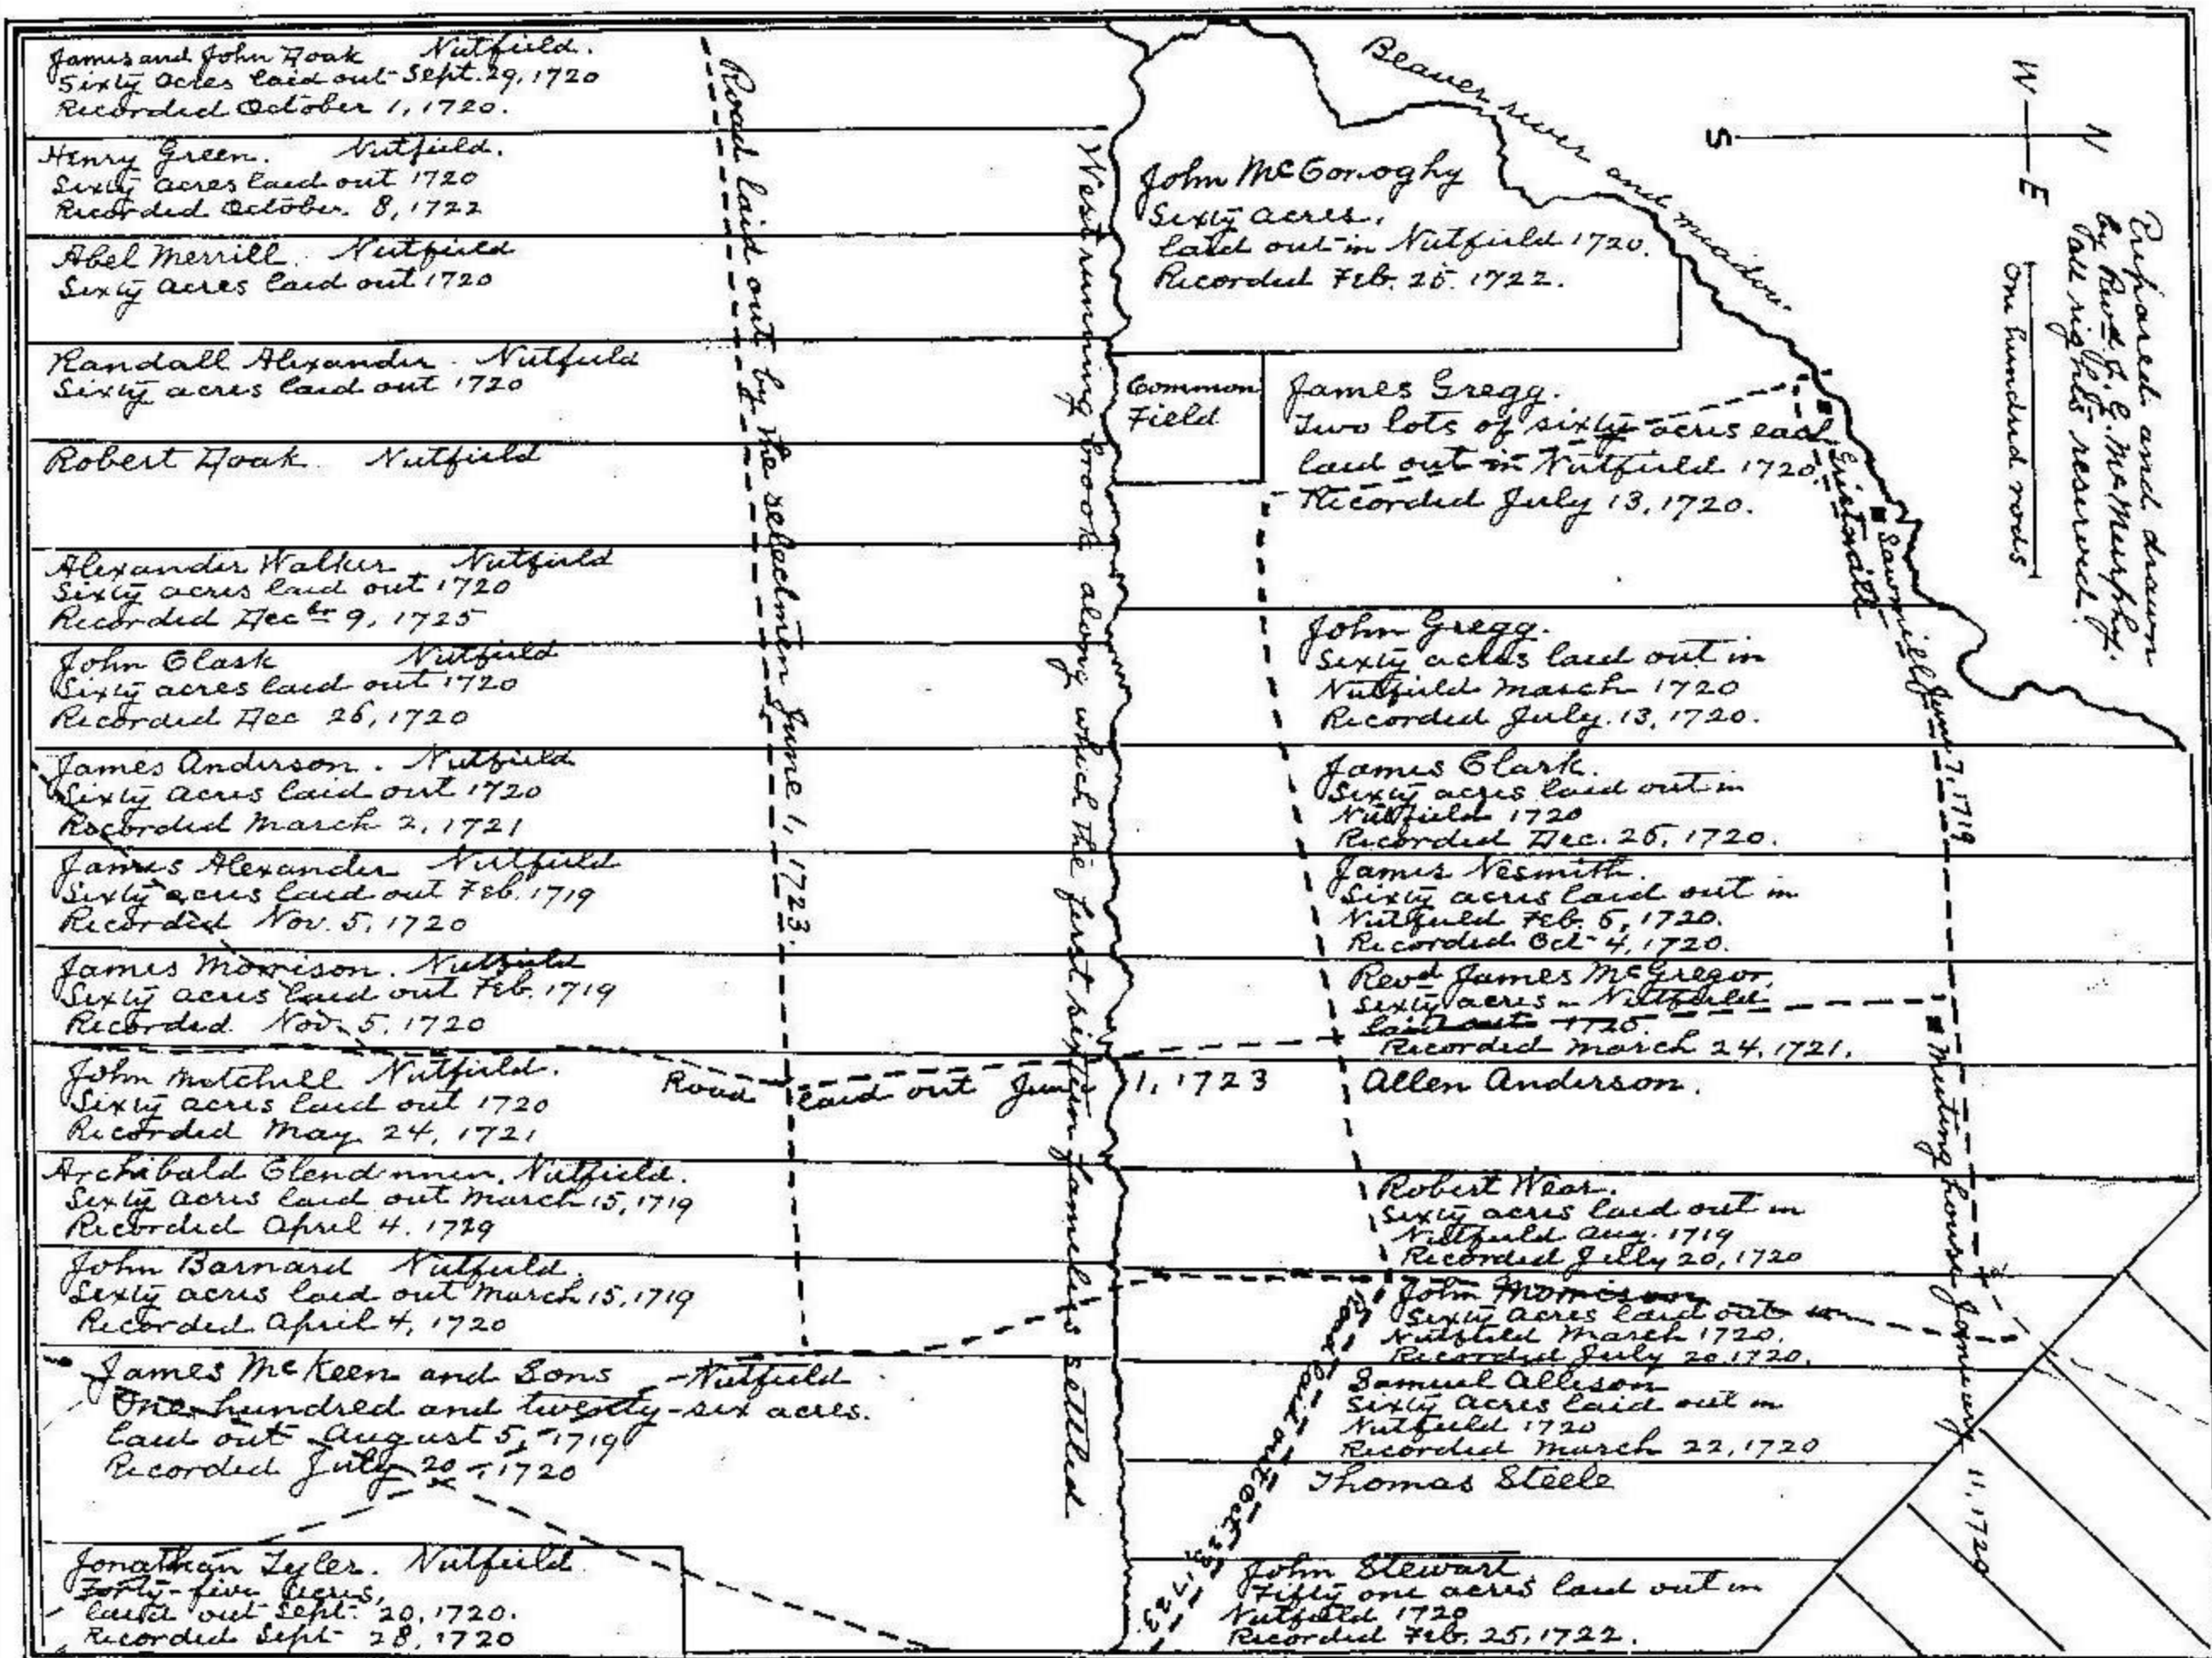 James and John Doak Nutfield.
Sixty acres laid out Sept. 29, 1720
Recorded October 1, 1720.
Henry Green. Nutfield.
Sixty acres laid out 1720
Recorded October. 8, 1722
Abel Merrill. Nutfield
Sixty acres laid out 1720
Randall Alexander. Nutfield
Sixty acres laid out 1720
Robert Doak. Nutfield
Alexander Walker Nutfield
Sixty acres laid out 1720
Recorded Decbr 9, 1725
John Clark Nutfield
Sixty acres laid out 1720
Recorded Dec 26, 1720
James Anderson. Nutfield
Sixty acres laid out 1720
Recorded March 2, 1721
James Alexander Nutfield
Sixty acres laid out Feb. 1719
Recorded Nov. 5, 1720
James Morrison. Nutfield
Sixty acres laid out Feb. 1719
Recorded Nov. 5. 1720
John Mitchell Nutfield.
Sixty acres laid out 1720
Recorded May 24, 1721
Archibald Clendinnen. Nutfield.
Sixty acres laid out March 15, 1719
Recorded April 4. 1729
John Barnard Nutfield.
Sixty acres laid out March 15, 1719
Recorded April 4, 1720
James McKeen and Sons - Nutfield
One hundred and twenty-six acres.
laid out August 5, 1719
Recorded July 20, 1720
Jonathan Tyler. Nutfield.
Forty-five acres,
laid out Sept. 20, 1720.
Recorded Sept 28, 1720
Road laid out by the selectmen June 1, 1723.
West running brook along which the first sixteen families settled
Road laid out June 1, 1723
Beaver river and meadow.
John McConoghy
Sixty acres,
laid out in Nutfield 1720.
Recorded Feb. 25. 1722.
Common
Field
James Gregg.
Two lots of sixty acres each
laid out in Nutfield 1720.
Recorded July 13, 1720.
John Gregg.
Sixty acres laid out in
Nutfield March 1720
Recorded July. 13, 1720.
James Clark.
Sixty acres laid out in
Nutfield 1720
Recorded Dec. 26, 1720.
James Nesmith.
Sixty acres laid out in
Nutfield Feb. 5, 1720.
Recorded Oct 4, 1720.
Revd James McGregor,
Sixty acres in Nutfield
laid out 1720.
Recorded March 24, 1721.
Allen Anderson.
Robert Wear.
Sixty acres laid out in
Nutfield Aug. 1719
Recorded July 20, 1720
John Morrison
Sixty acres laid out in
Nutfield March 1720.
Recorded July 20, 1720.
Samuel Allison
Sixty acres laid out in
Nutfield 1720
Recorded March 22, 1720
Thomas Steele
John Stewart.
Fifty one acres laid out in
Nutfield 1720
Recorded Feb. 25, 1722.
Road laid out Oct 1723.
Gristmill
Sawmill June 7, 1719
Meeting house January 11, 1720
N
W
E
S
Prepared and drawn
by Revd J. G. MacMurphy.
All rights reserved.
One hundred rods